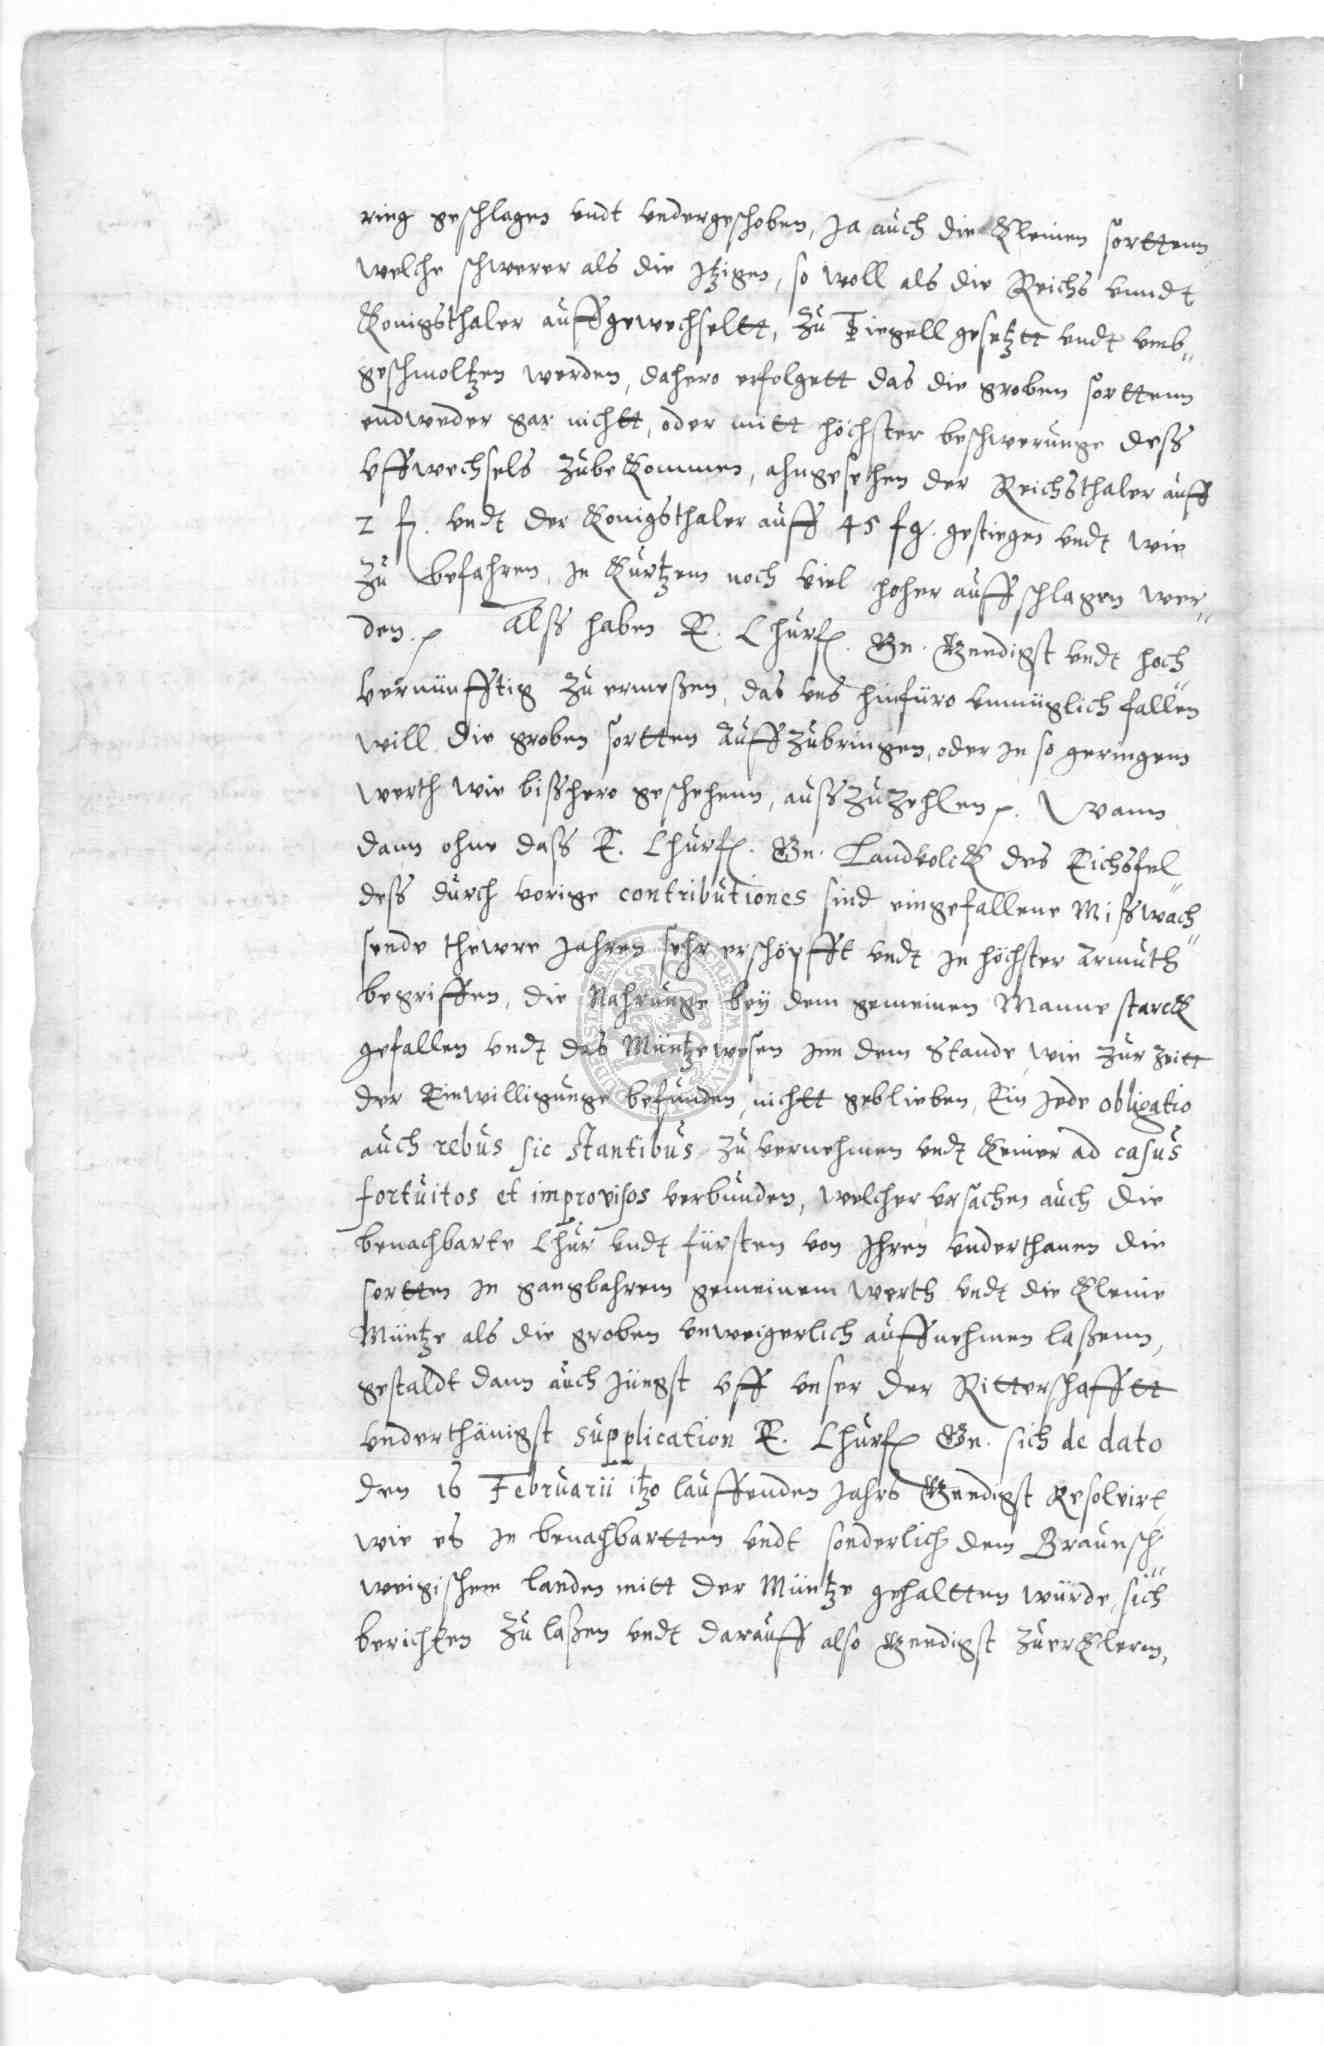 ring geschlagen undt undergeschoben, Ja auch die Kleinen sorttenn
welche schwerer als die Jtzigen, so woll als die Reichs unndt
Konigsthaler auffgewechseltt, zu Tiegell gesetztt undt umb„
geschmoltzen werden, dahero erfolgett das die groben sorttenn
endweder gar nichtt, oder mitt höchster beschwerunge dess
uffwechsels zubekommen, ahngesehen der Reichsthaler auff
2 fl. undt der Konigsthaler auff 45 fg. gestiegen undt wie
zu befahren, in Kurtzem noch viel hoher auffschlagen wer„
den. Alss haben E. Churf. Gn. Gnedigst undt hoch„
vernünfftig zu ermeßen, das uns hinfüro unmüglich fallen
will die groben sortten auffzubringen, oder in so geringem
werth wie bisshero geschehenn, ausszuzehlen. Wann
dann ohne dass E. Churf. Gn. Landvolck des Eichsfel„
dess durch vorige contributiones sind eingefallene Misswach„
sende thewre Jahren sehr erschöpfft undt in höchster Armuth
begriffen, die Nahrunge bey dem gemeinen Manne starck
gefallen undt das Müntzewesen inn dem Stande, wie zur zeitt
der Einwilligunge befunden, nichtt geblieben, Ein jede obligatio
auch rebus sic stantibus zu vernehmen undt Keiner ad casus
fortuitos et improvisos verbunden, welcher ursachen auch die
benachbarte Chur undt fürsten von Ihren underthanen die
sortten in gangbahrem gemeinem werth undt die Kleine
Müntze als die groben unweigerlich auffnehmen laßenn,
gestaldt dann auch jüngst uff unser der Ritterschafftt
underthänigst supplication E. Churf Gn. sich de dato
den 16 Februarii itzo lauffenden Jahrs Gnedigst Resolvirt
wie es in benachbartten undt sonderlich dem Braunsch„
weigischem landen mitt der Müntze gehaltten würde, sich
berichten zu laßen undt darauff also Gnedigst zuerklern,